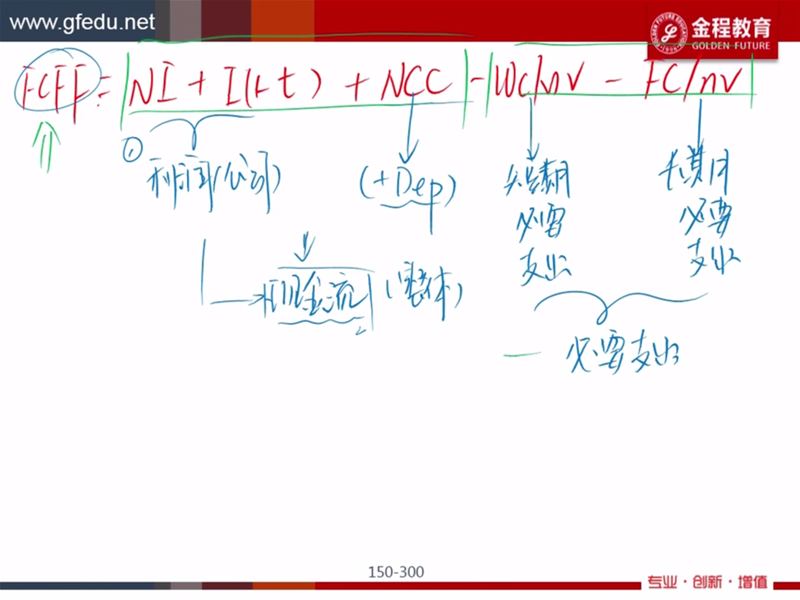 www.gfedu.net
金程教育
GOLDEN FUTURE
FCFF = NI + I(1-t) + NCC - WCInv - FCInv
① 利润(公司)
(+Dep)
短期
必要
支出
长期
必要
支出
现金流 (整体)
— 必要支出
150-300
专业·创新·增值